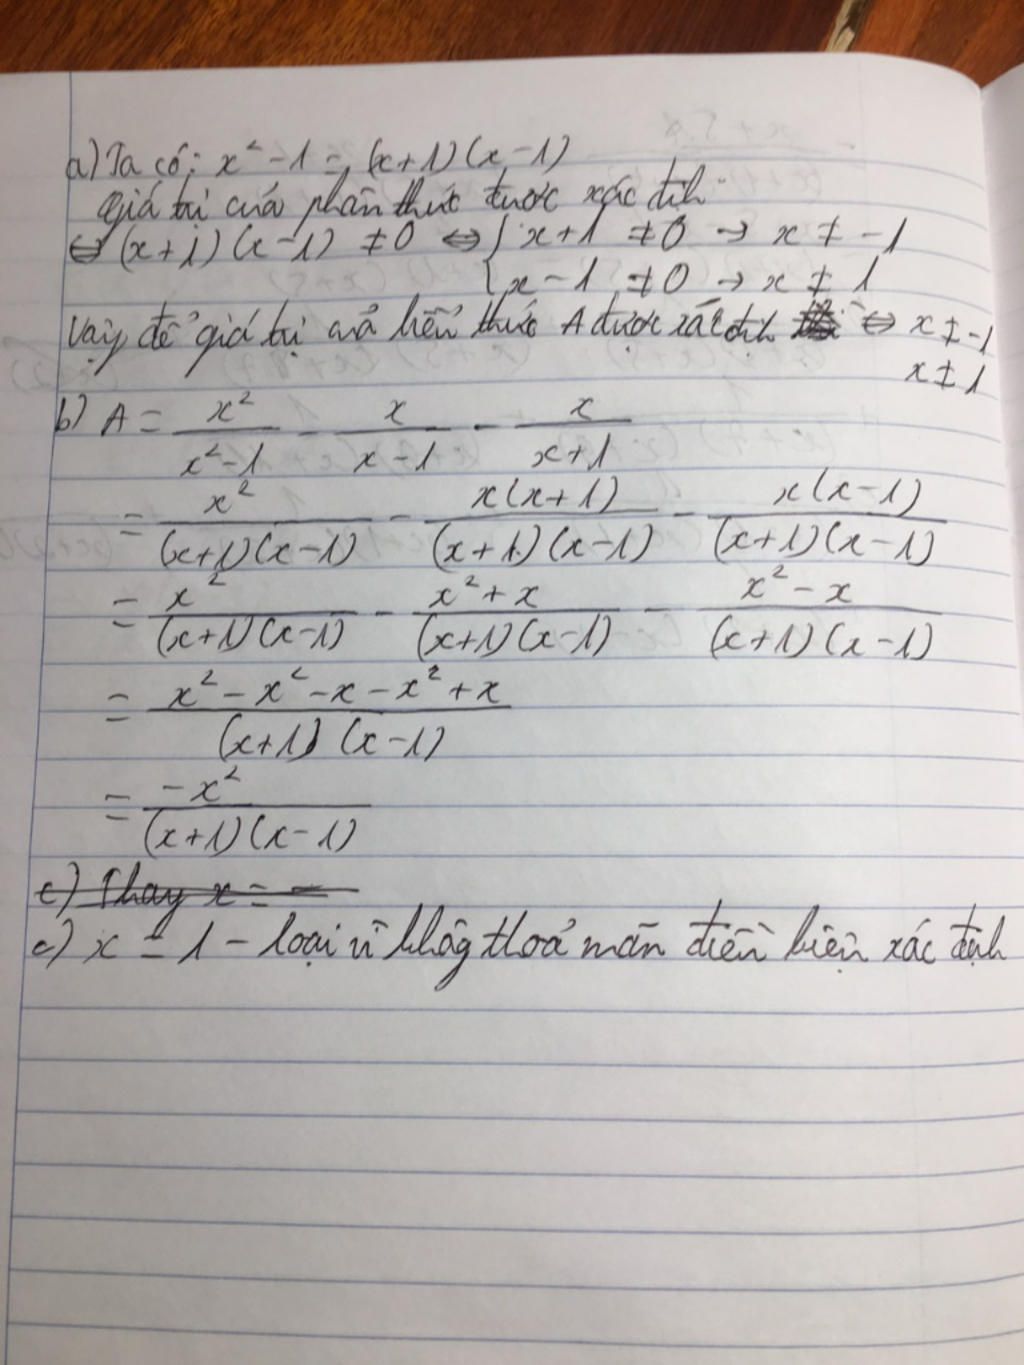 a) Ta có: x² - 1 = (x+1)(x-1)
giá trị của phân thức được xác địh
⇔ (x+1)(x-1) ≠ 0 ⇔ { x+1 ≠ 0 → x ≠ -1
x - 1 ≠ 0 → x ≠ 1
Vậy để giá trị của biểu thức A được xác địh ⇔ x ≠ -1
x ≠ 1
b) A = x²/(x²-1) - x/(x-1) - x/(x+1)
= x²/((x+1)(x-1)) - x(x+1)/((x+1)(x-1)) - x(x-1)/((x+1)(x-1))
= x²/((x+1)(x-1)) - (x²+x)/((x+1)(x-1)) - (x²-x)/((x+1)(x-1))
= (x² - x² - x - x² + x)/((x+1)(x-1))
= -x²/((x+1)(x-1))
c) Thay x = -
c) x = 1 - loại vì khôg thoả mãn điều kiện xác địh